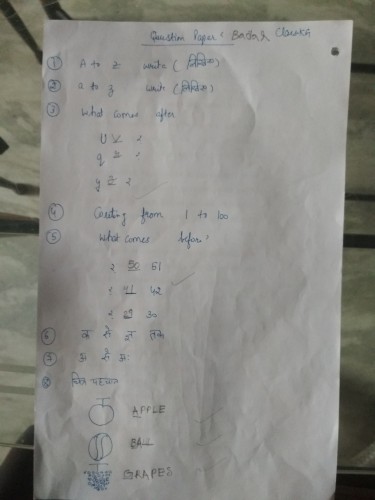 Question Paper:
① A to z write (लिखिए)
② a to z write (लिखिए)
③ What comes after
U V
q
y z
④ Counting from 1 to 100
⑤ What comes before
50 51
41 42
29 30
⑥ क से ज्ञ तक
⑦ अ से अः
⑧ चित्र पहचान
APPLE
BALL
GRAPES